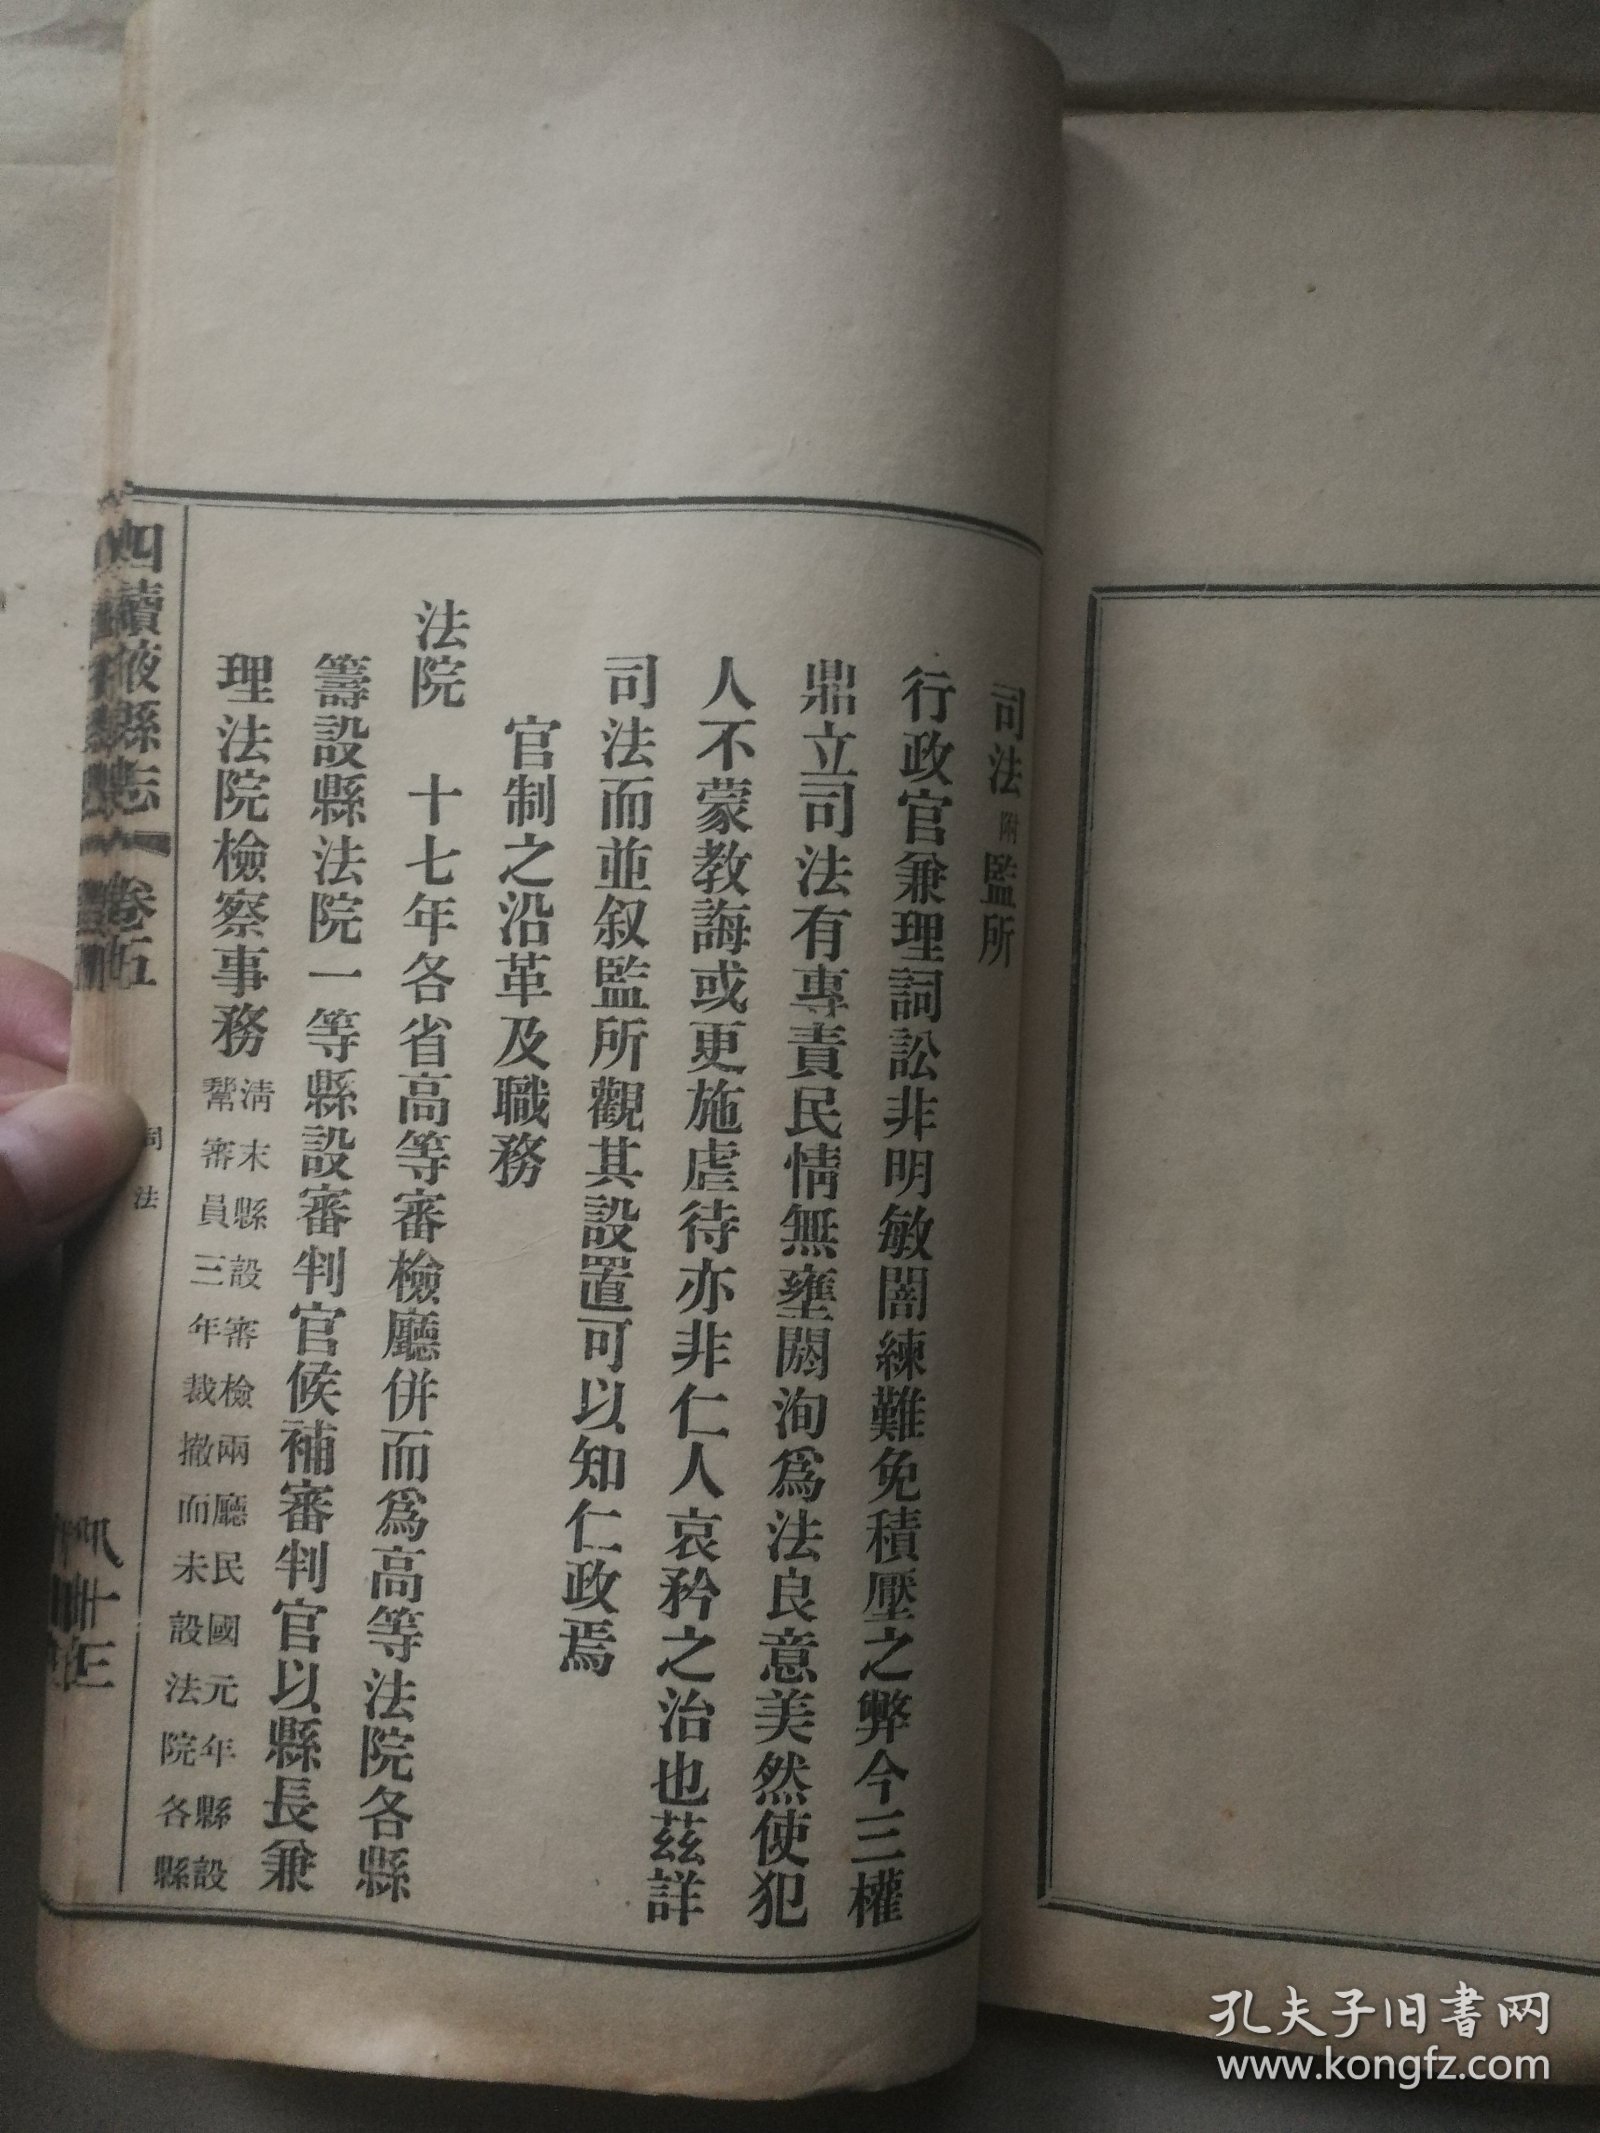 司法附監所
行政官兼理詞訟非明敏闇練難免積壓之弊今三權
鼎立司法有專責民情無壅閼洵爲法良意美然使犯
人不蒙教誨或更施虐待亦非仁人哀矜之治也茲詳
司法而並叙監所觀其設置可以知仁政焉
官制之沿革及職務
法院　十七年各省高等審檢廳併而爲高等法院各縣
籌設縣法院一等縣設審判官候補審判官以縣長兼
理法院檢察事務
清末縣設審檢兩廳民國元年縣設
幫審員三年裁撤而未設法院各縣
四續掖縣志　卷五
司法
孔夫子旧书网
www.kongfz.com